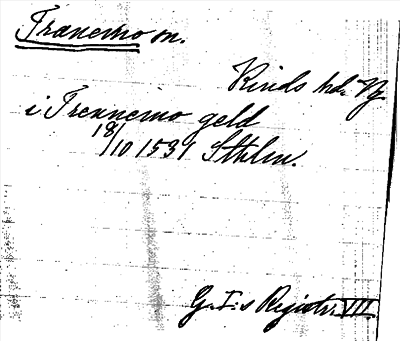 Tranemo sn.
Kinds hd. Vg
i Trennemo geld
18/10 1531 Sthlm.
G. I:s Registr. VII.